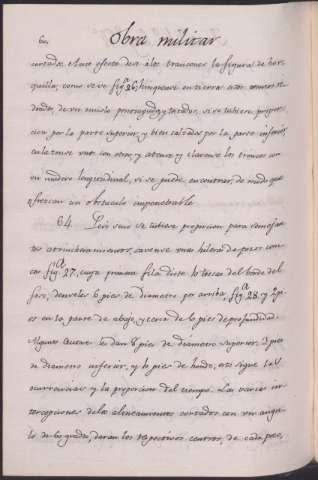 60, Obra militar
cortados. A este efecto dese á los troncones la figura de hor-
quilla, como se ve fig.ª 26;
de un muslo
cion por la parte superior, y bien calzados por la parte inferior,
unos con otros, y atense y clavense los troncos con
un madero longitudinal, si se puede encontrar, de modo que
ofrezcan un obstaculo impenetrable.
64. Pero si no se tubiere proporcion para semejan-
tes atrincheramientos, cavense unas hileras de pozos coni-
cos fig.ª 27, cuya primera fila diste 10 toesas del borde del
foso, denseles 6 pies de diametro por arriba, fig.ª 28, y 2 pi-
es en la parte de abajo, y cerca de 6 pies de profundidad.
Algunos Autores les dan 8 pies de diametro superior, 3 pies
de diametro inferior, y 6 pies de hondo, esto sigue las
ocurrencias y la proporcion del tiempo. Las varias in-
tercepciones de los alineamientos cortados con un angu-
lo de 60 grados, daran los respectivos centros, de cada pozo,